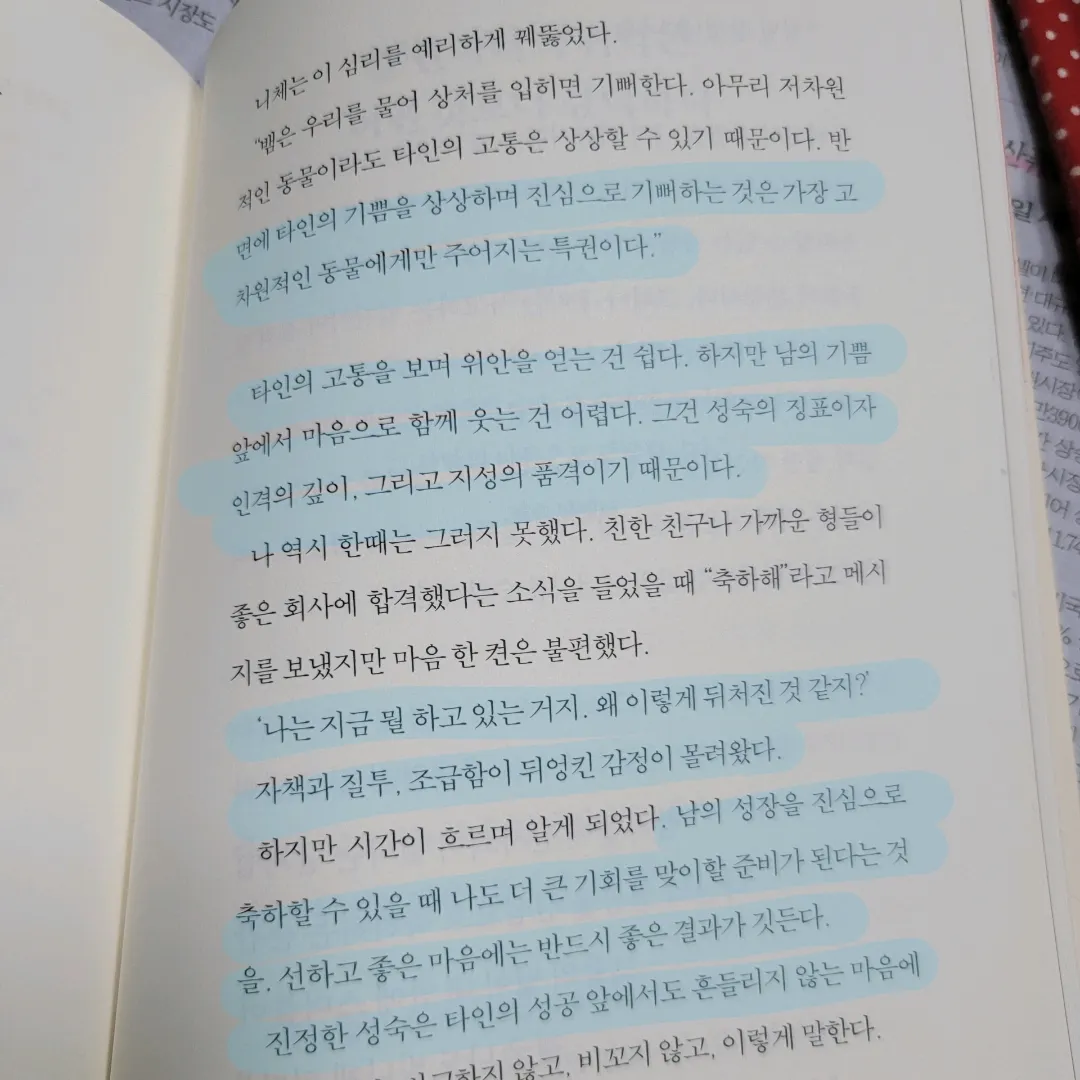 니체는 이 심리를 예리하게 꿰뚫었다.
“뱀은 우리를 물어 상처를 입히면 기뻐한다. 아무리 저차원
적인 동물이라도 타인의 고통은 상상할 수 있기 때문이다. 반
면에 타인의 기쁨을 상상하며 진심으로 기뻐하는 것은 가장 고
차원적인 동물에게만 주어지는 특권이다.”
타인의 고통을 보며 위안을 얻는 건 쉽다. 하지만 남의 기쁨
앞에서 마음으로 함께 웃는 건 어렵다. 그건 성숙의 징표이자
인격의 깊이, 그리고 지성의 품격이기 때문이다.
나 역시 한때는 그러지 못했다. 친한 친구나 가까운 형들이
좋은 회사에 합격했다는 소식을 들었을 때 “축하해”라고 메시
지를 보냈지만 마음 한 켠은 불편했다.
‘나는 지금 뭘 하고 있는 거지. 왜 이렇게 뒤처진 것 같지?’
자책과 질투, 조급함이 뒤엉킨 감정이 몰려왔다.
하지만 시간이 흐르며 알게 되었다. 남의 성장을 진심으로
축하할 수 있을 때 나도 더 큰 기회를 맞이할 준비가 된다는 것
을. 선하고 좋은 마음에는 반드시 좋은 결과가 깃든다.
진정한 성숙은 타인의 성공 앞에서도 흔들리지 않는 마음에
않고, 비꼬지 않고, 이렇게 말한다.
시장도